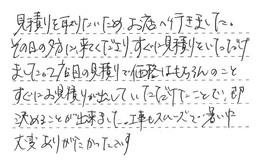 見積りを取りたいため、お店へ行きました。
その日の夕方に来てくださり、すぐに見積りをいただけ
ました。2店目の見積りで価格はもちろんのこと
すぐにお見積りが出していただけたことで、即
決めることが出来ました。工事もスムーズで暑い中
大変ありがたかったです